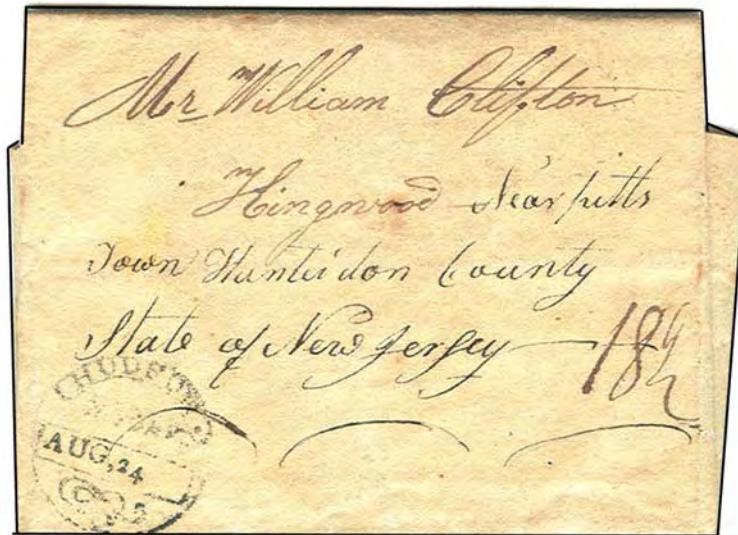 Mr William Clifton
Kingwood Near pitts
Town Hunterdon County
State of New Jersey 18½
HUDSON
AUG, 24